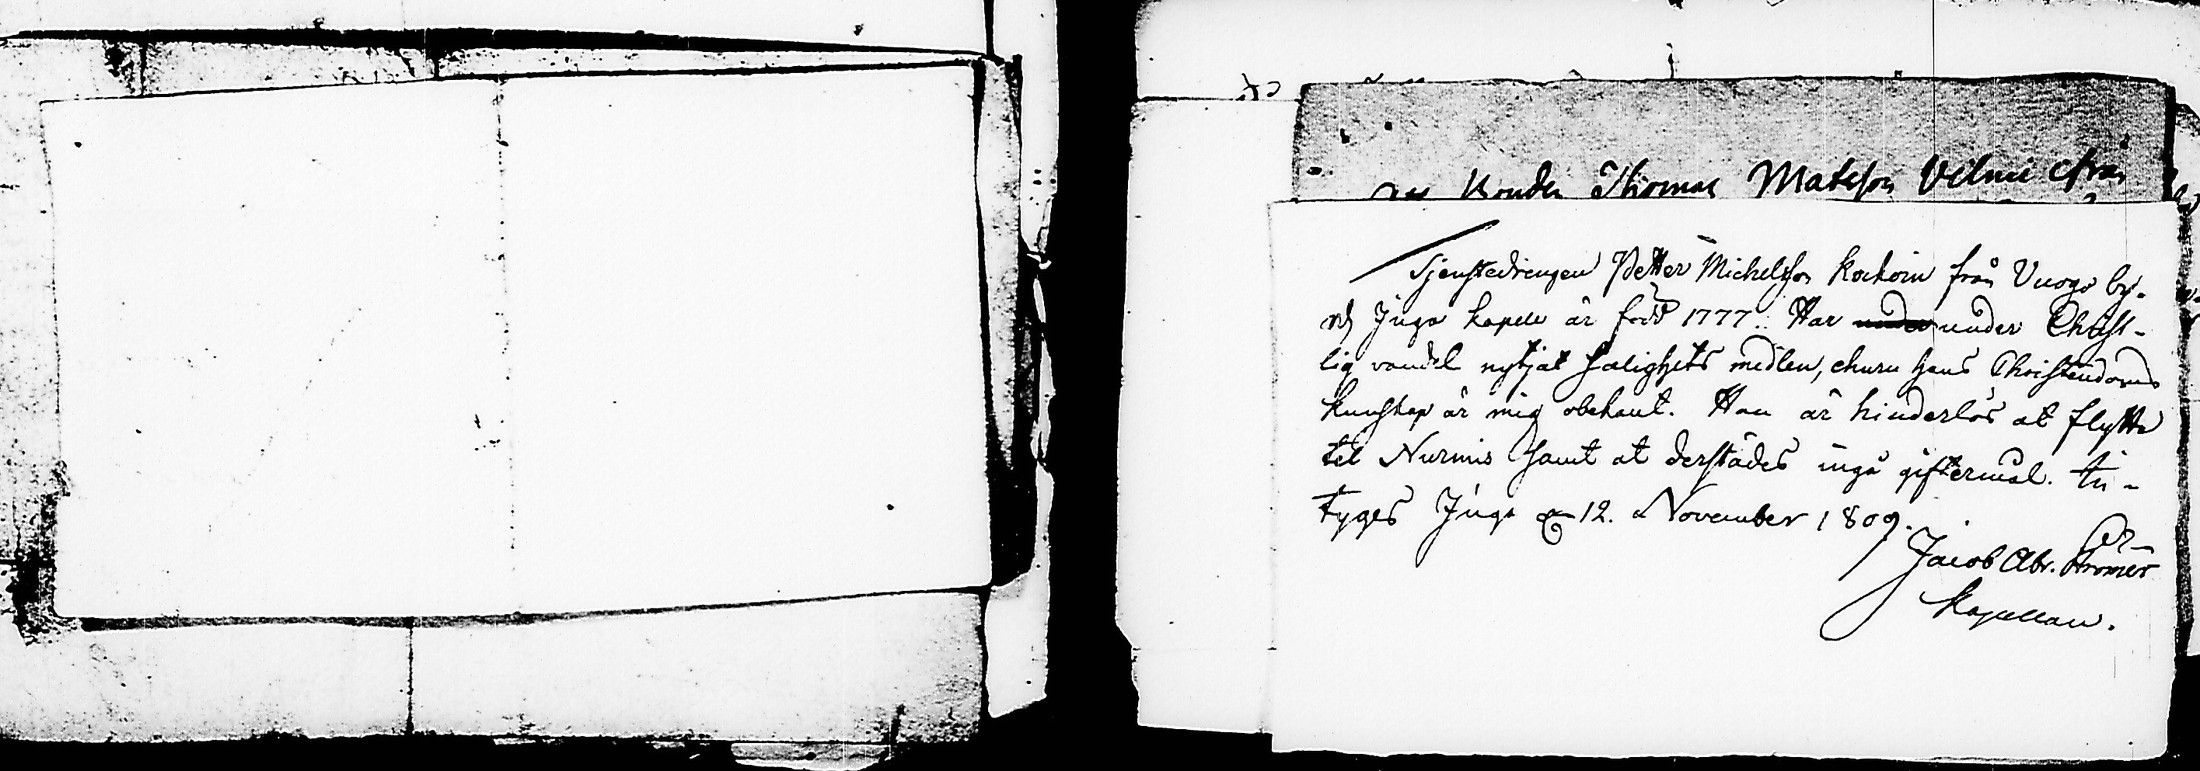 Bonden Thomas Matsson Vilmi ifrån
Tjenstedrengen Petter Michelsson Kockoin från Vuogo by
och Juga Kapell är född 1777. Har under Christ-
lig vandel nytjat salighets medlen, ehuru hans Christendoms
kunskap är mig obekant. Han är hinderlös at flytta
til Nurmis samt at derstädes ingå giftermål. Be-
tyges Juga d 12. November 1809.
Jacob Abr. Stromer
Kapellan.